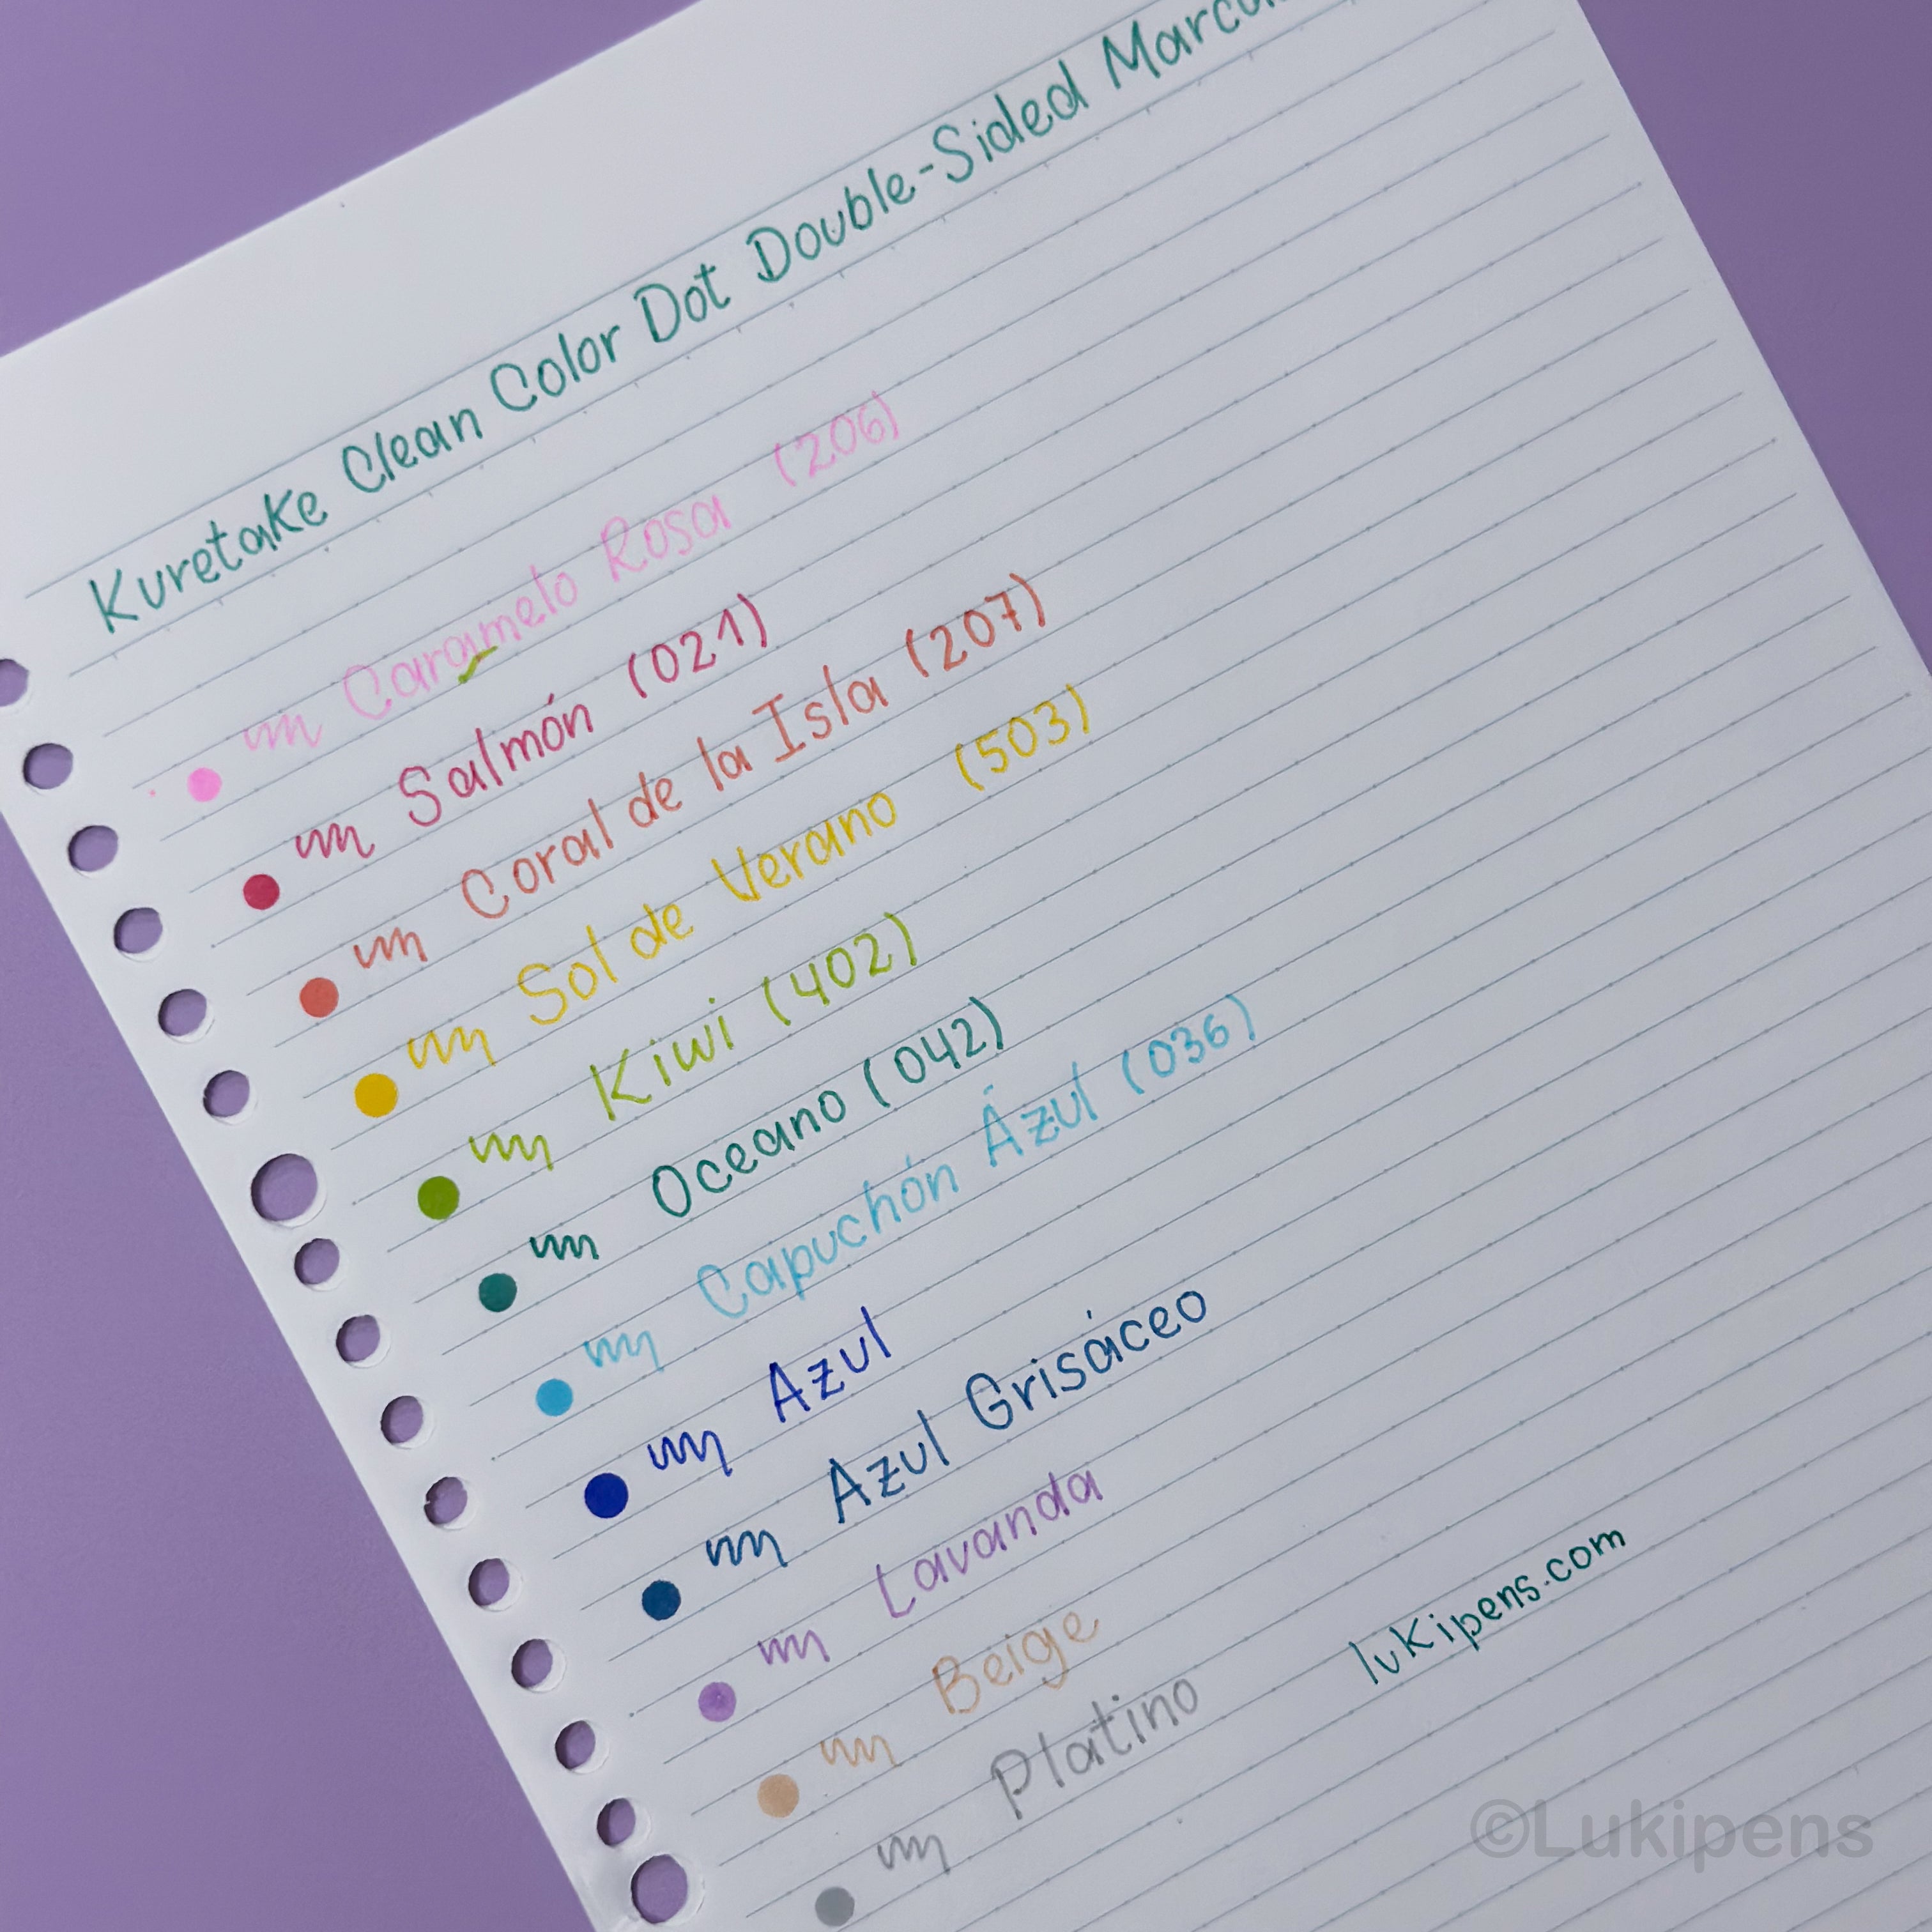 Kuretake Clean Color Dot Double-Sided
Caramelo Rosa (206)
Salmón (021)
Coral de la Isla (207)
Sol de Verano (503)
Kiwi (402)
Oceano (042)
Capuchón Ázul (036)
Azul
Azul Grisáceo
Lavanda
Beige
Platino
lukipens.com
©Lukipens